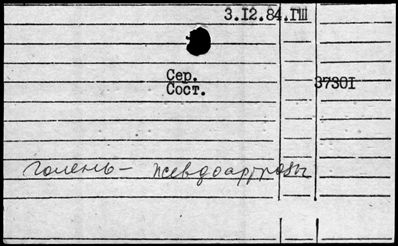 3.I2.84.ГШ
Сер.
Сост.
3730I
голень - псевдоартрозы